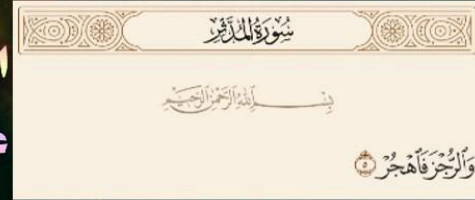 سُورَةُ الْمُدَّثِّرِ
بِسْمِ اللَّهِ الرَّحْمَٰنِ الرَّحِيمِ
وَالرُّجْزَ فَاهْجُرْ ٥